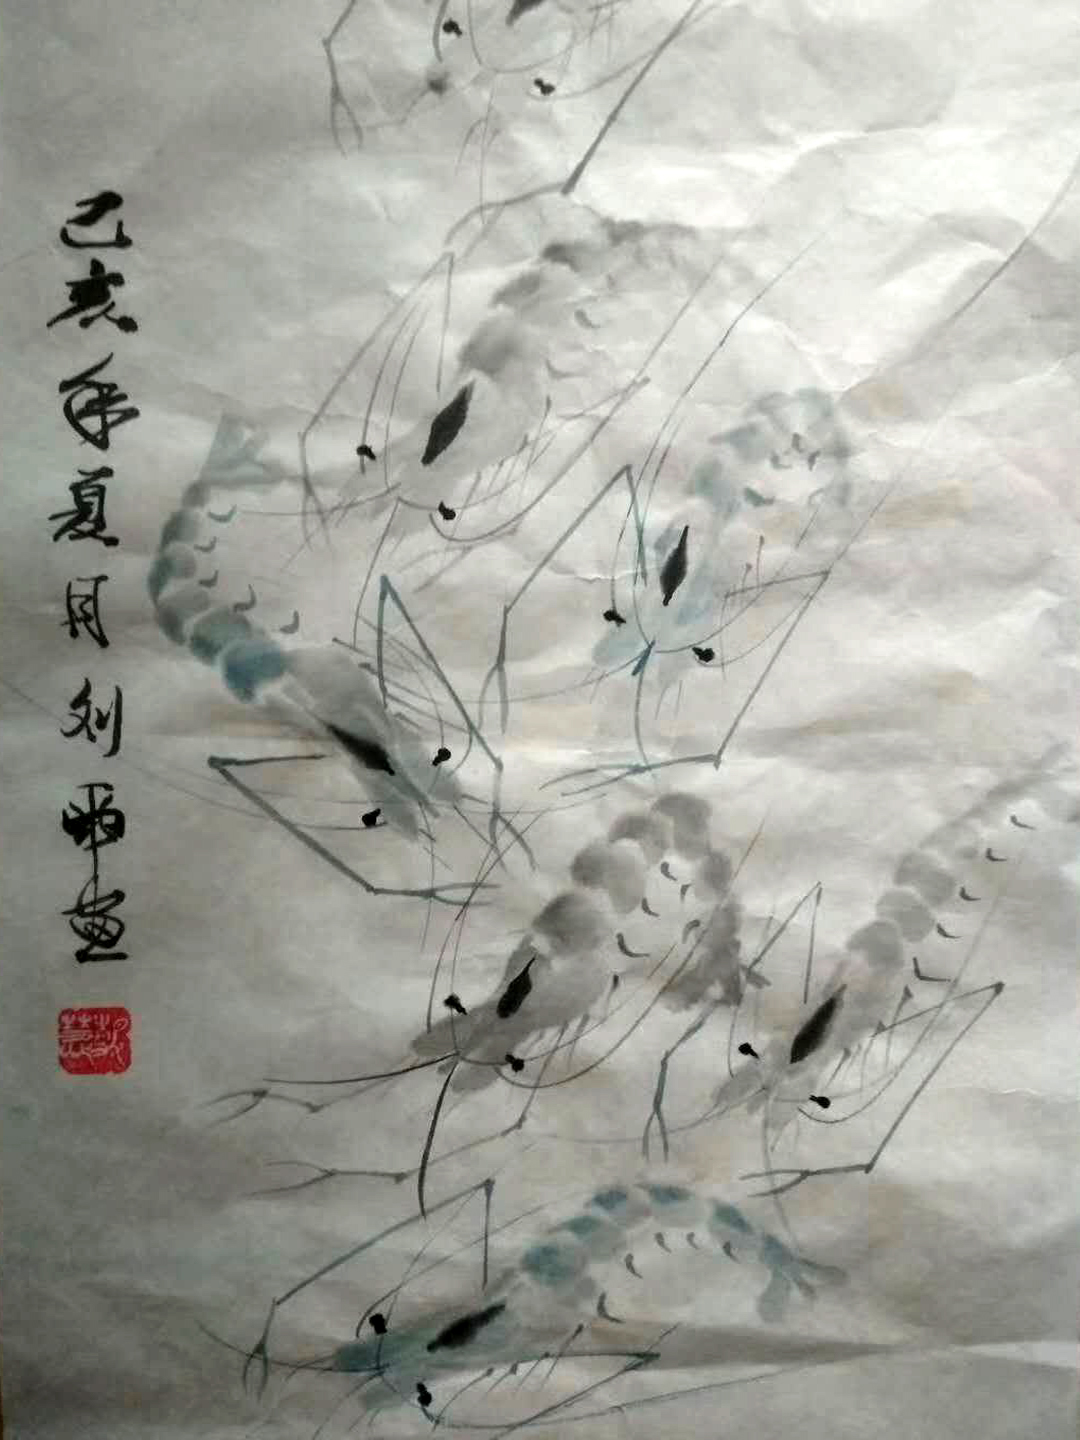 己亥年夏月刘
画